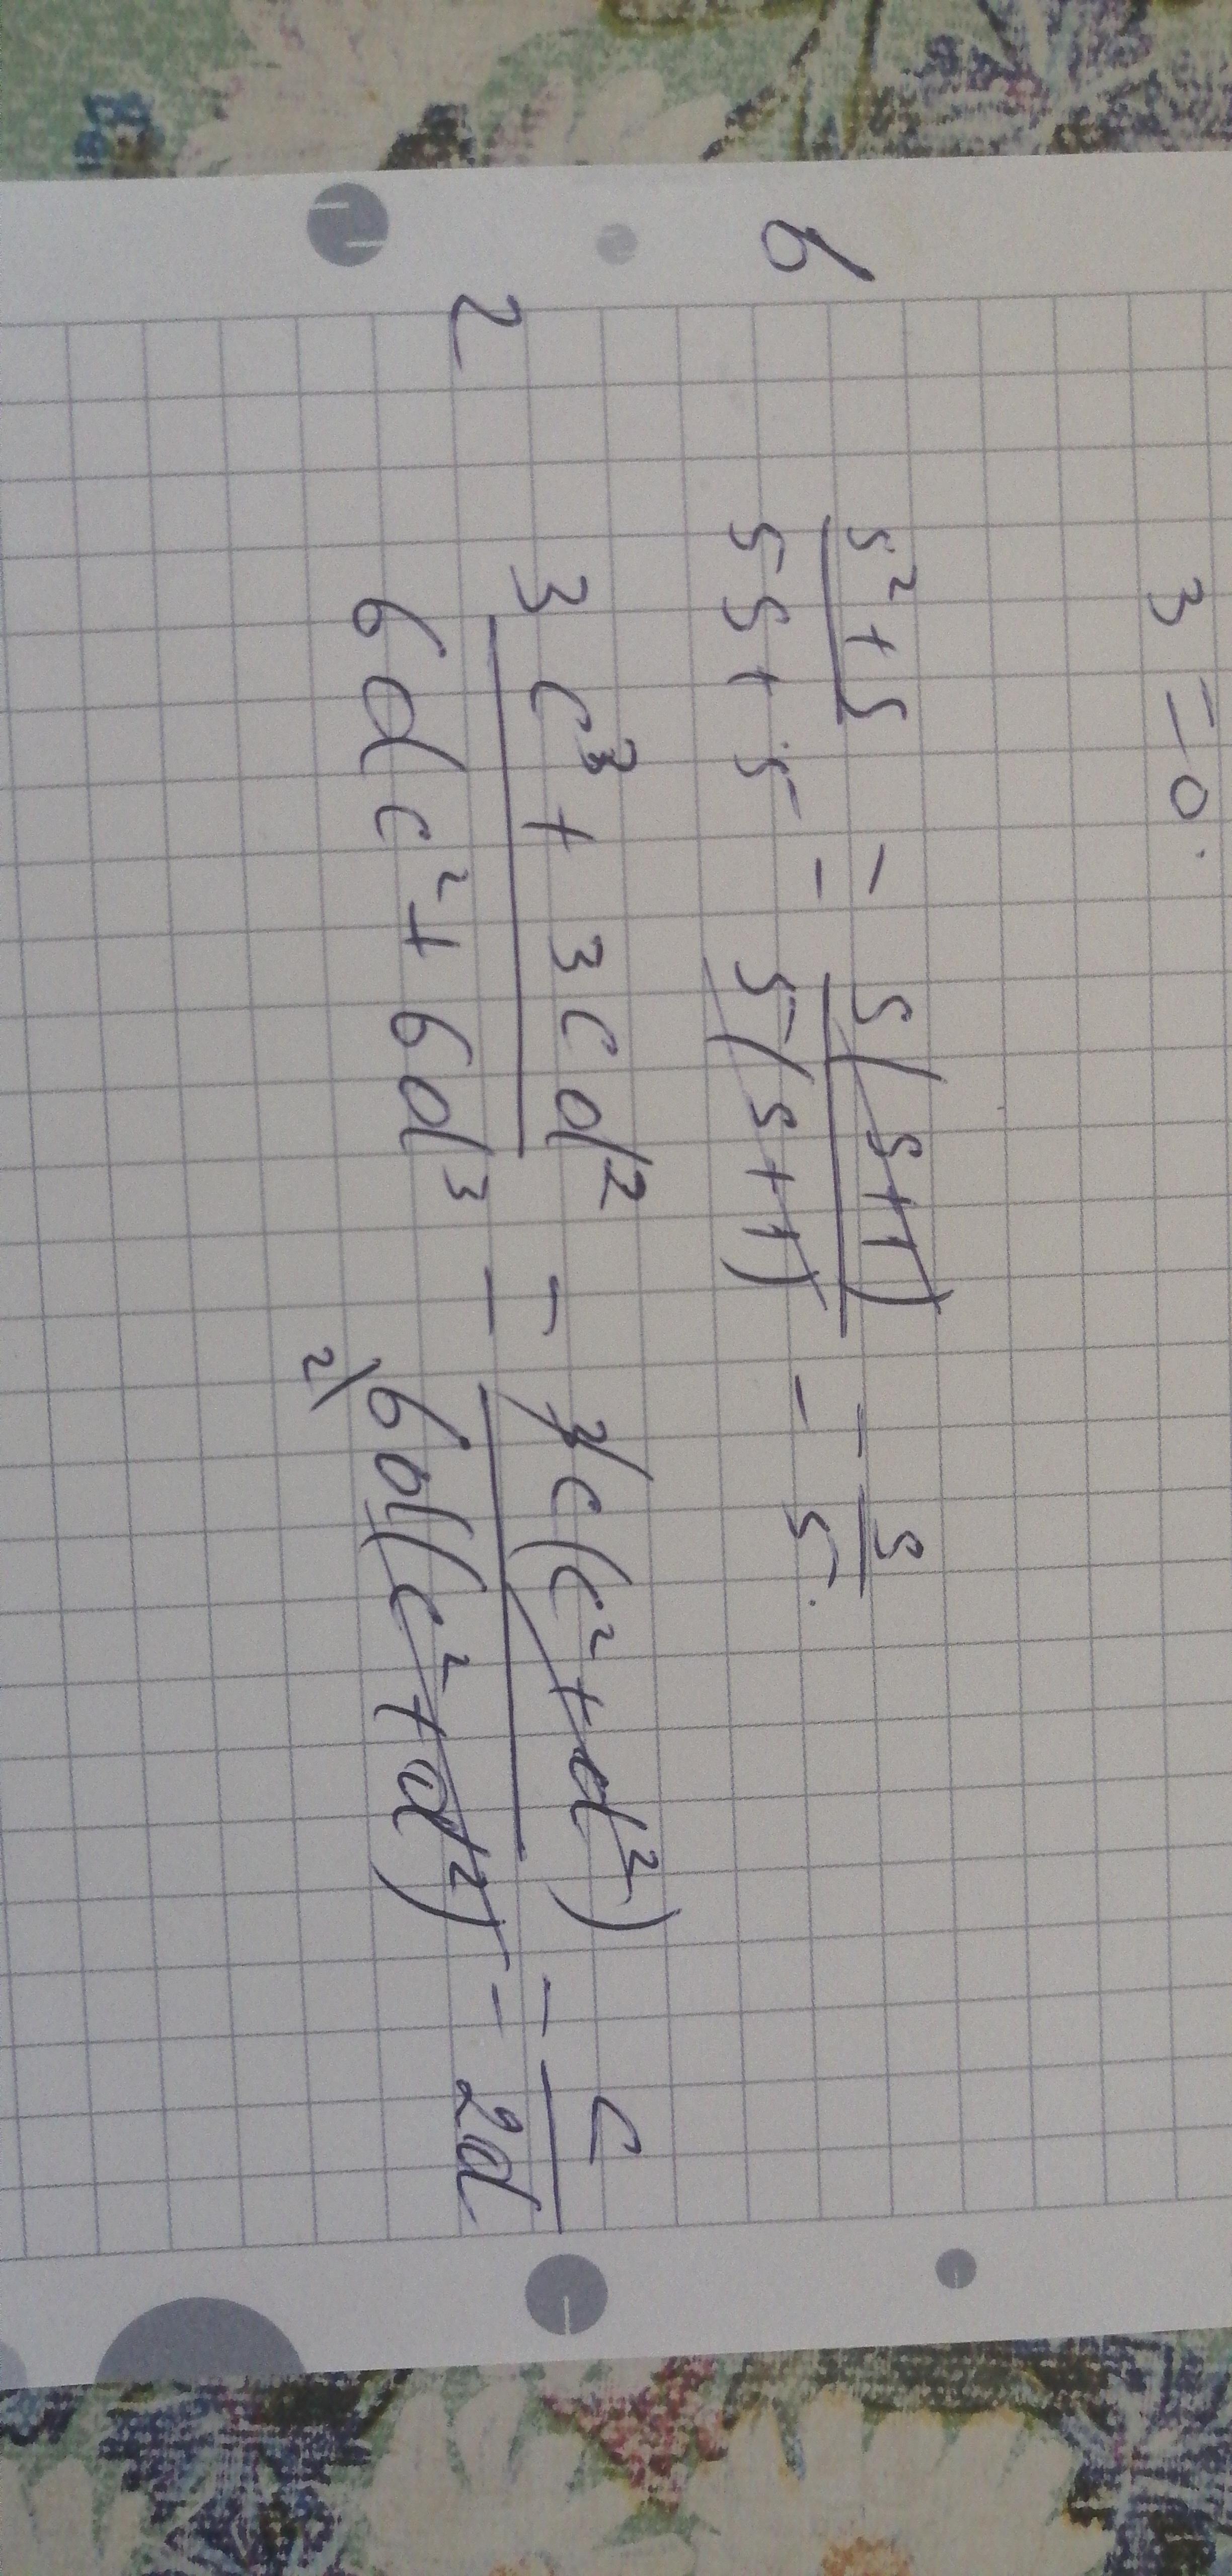 3 = 0.
б s² + s / 5s + 5 = s(s+1) / 5(s+1) = s / 5.
г 3c³ + 3cd² / 6dc² + 6d³ = 3c(c² + d²) / 2\6d(c² + d²) = c / 2d